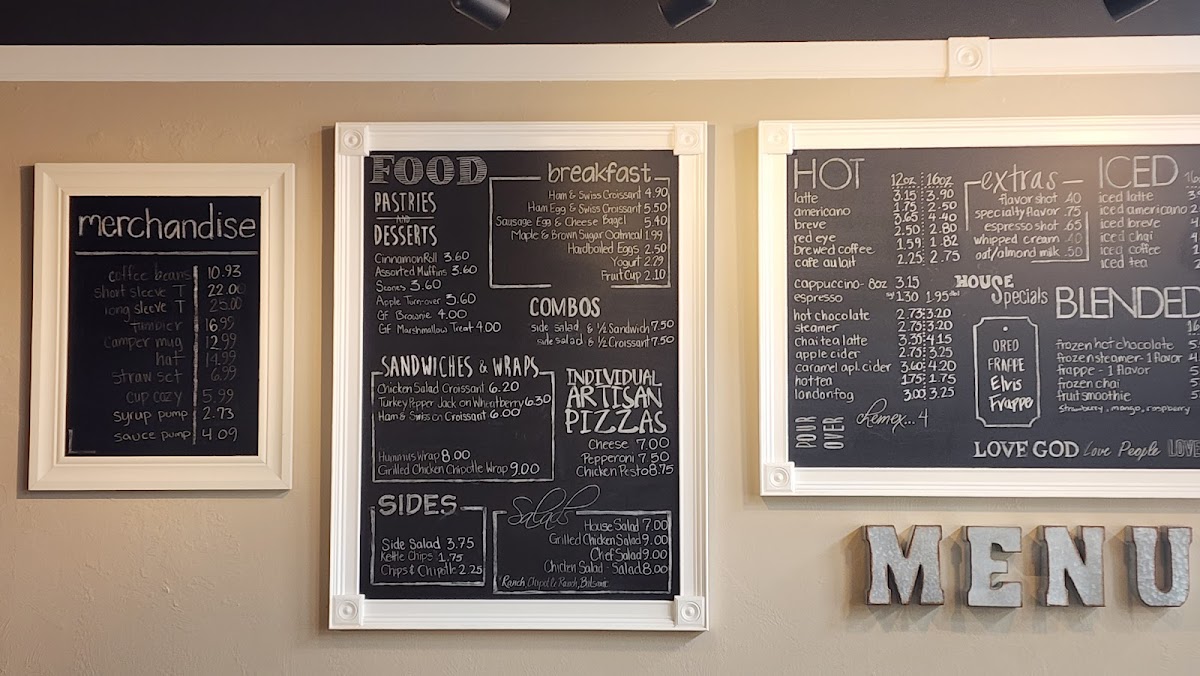 merchandise
coffee beans 10.93
short sleeve T 22.00
long sleeve T 25.00
tumbler 16.99
camper mug 12.99
hat 14.99
straw set 6.99
cup cozy 5.99
syrup pump 2.73
sauce pump 4.09
FOOD
PASTRIES
AND
DESSERTS
Cinnamon Roll 3.60
Assorted Muffins 3.60
Scones 3.60
Apple Turnover 3.60
GF Brownie 4.00
GF Marshmallow Treat 4.00
breakfast
Ham & Swiss Croissant 4.90
Ham Egg & Swiss Croissant 5.50
Sausage Egg & Cheese Bagel 5.40
Maple & Brown Sugar Oatmeal 1.99
Hardboiled Eggs 2.50
Yogurt 2.29
Fruit Cup 2.10
COMBOS
side salad & 1/2 Sandwich 7.50
side salad & 1/2 Croissant 7.50
SANDWICHES & WRAPS
Chicken Salad Croissant 6.20
Turkey Pepper Jack on Wheatberry 6.30
Ham & Swiss on Croissant 6.00
Hummus Wrap 8.00
Grilled Chicken Chipotle Wrap 9.00
INDIVIDUAL
ARTISAN
PIZZAS
Cheese 7.00
Pepperoni 7.50
Chicken Pesto 8.75
SIDES
Side Salad 3.75
Kettle Chips 1.75
Chips & Chipotle 2.25
Salads
House Salad 7.00
Grilled Chicken Salad 9.00
Chef Salad 9.00
Chicken Salad - Salad 8.00
HOT
12oz 16oz
latte 3.15 3.90
americano 1.75 2.50
breve 3.65 4.40
red eye 2.50 2.80
brewed coffee 1.59 1.82
cafe au lait 2.25 2.75
cappuccino - 8oz 3.15
espresso 1.30 1.95
hot chocolate 2.75 3.20
steamer 2.75 3.20
chai tea latte 3.35 4.15
apple cider 2.75 3.25
caramel apl. cider 3.60 4.20
hot tea 1.75 1.75
london fog 3.00 3.25
POUR
OVER
chemex... 4
extras
flavor shot .40
specialty flavor .75
espresso shot .65
whipped cream .40
oat/almond milk .50
ICED
iced latte
iced americano
iced breve
iced chai
iced coffee
iced tea
HOUSE
Specials
OREO
FRAPPE
Elvis
Frappe
BLENDED
frozen hot chocolate
frozen steamer - 1 flavor
frappe - 1 flavor
frozen chai
fruit smoothie
strawberry, mango, raspberry
LOVE GOD Love People LOVE
MENU